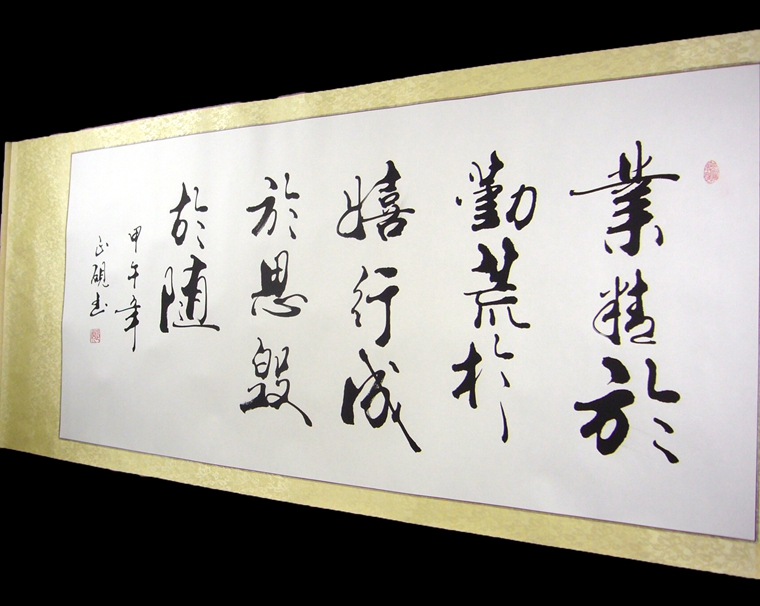 業精於
勤荒於
嬉行成
於思毀
於随
甲午年
正硯書